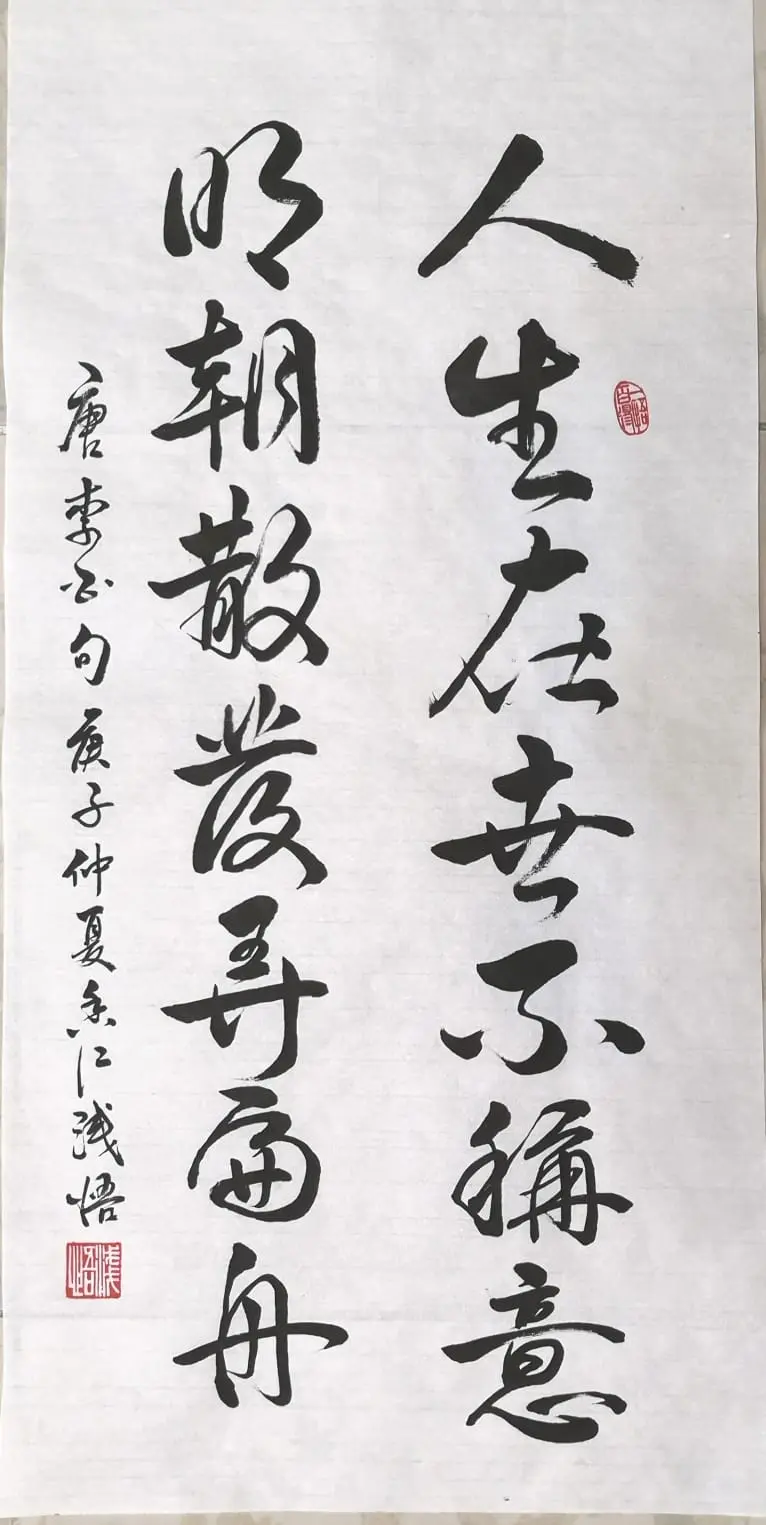 人生在世不稱意
明朝散發弄扁舟
唐李白句庚子仲夏香仁浅悟
浅悟